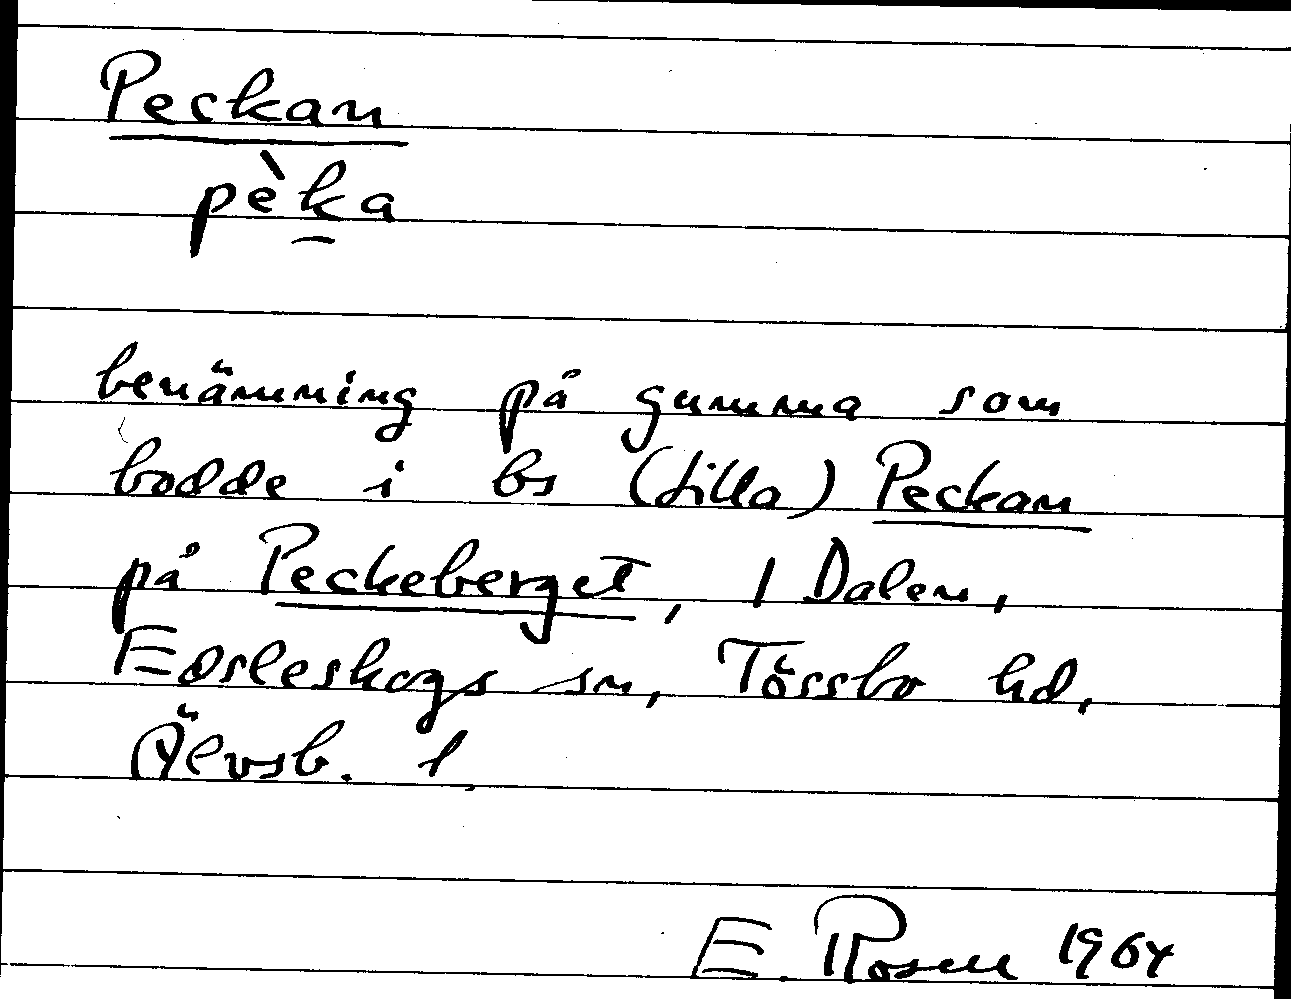 Peckan
pèk̠a
benämning på gumma som
bodde i bs (Lilla) Peckan
på Peckeberget, 1 Dalen,
Edsleskogs sn, Tössbo hd,
Älvsb. l.
E. Rosen 1964